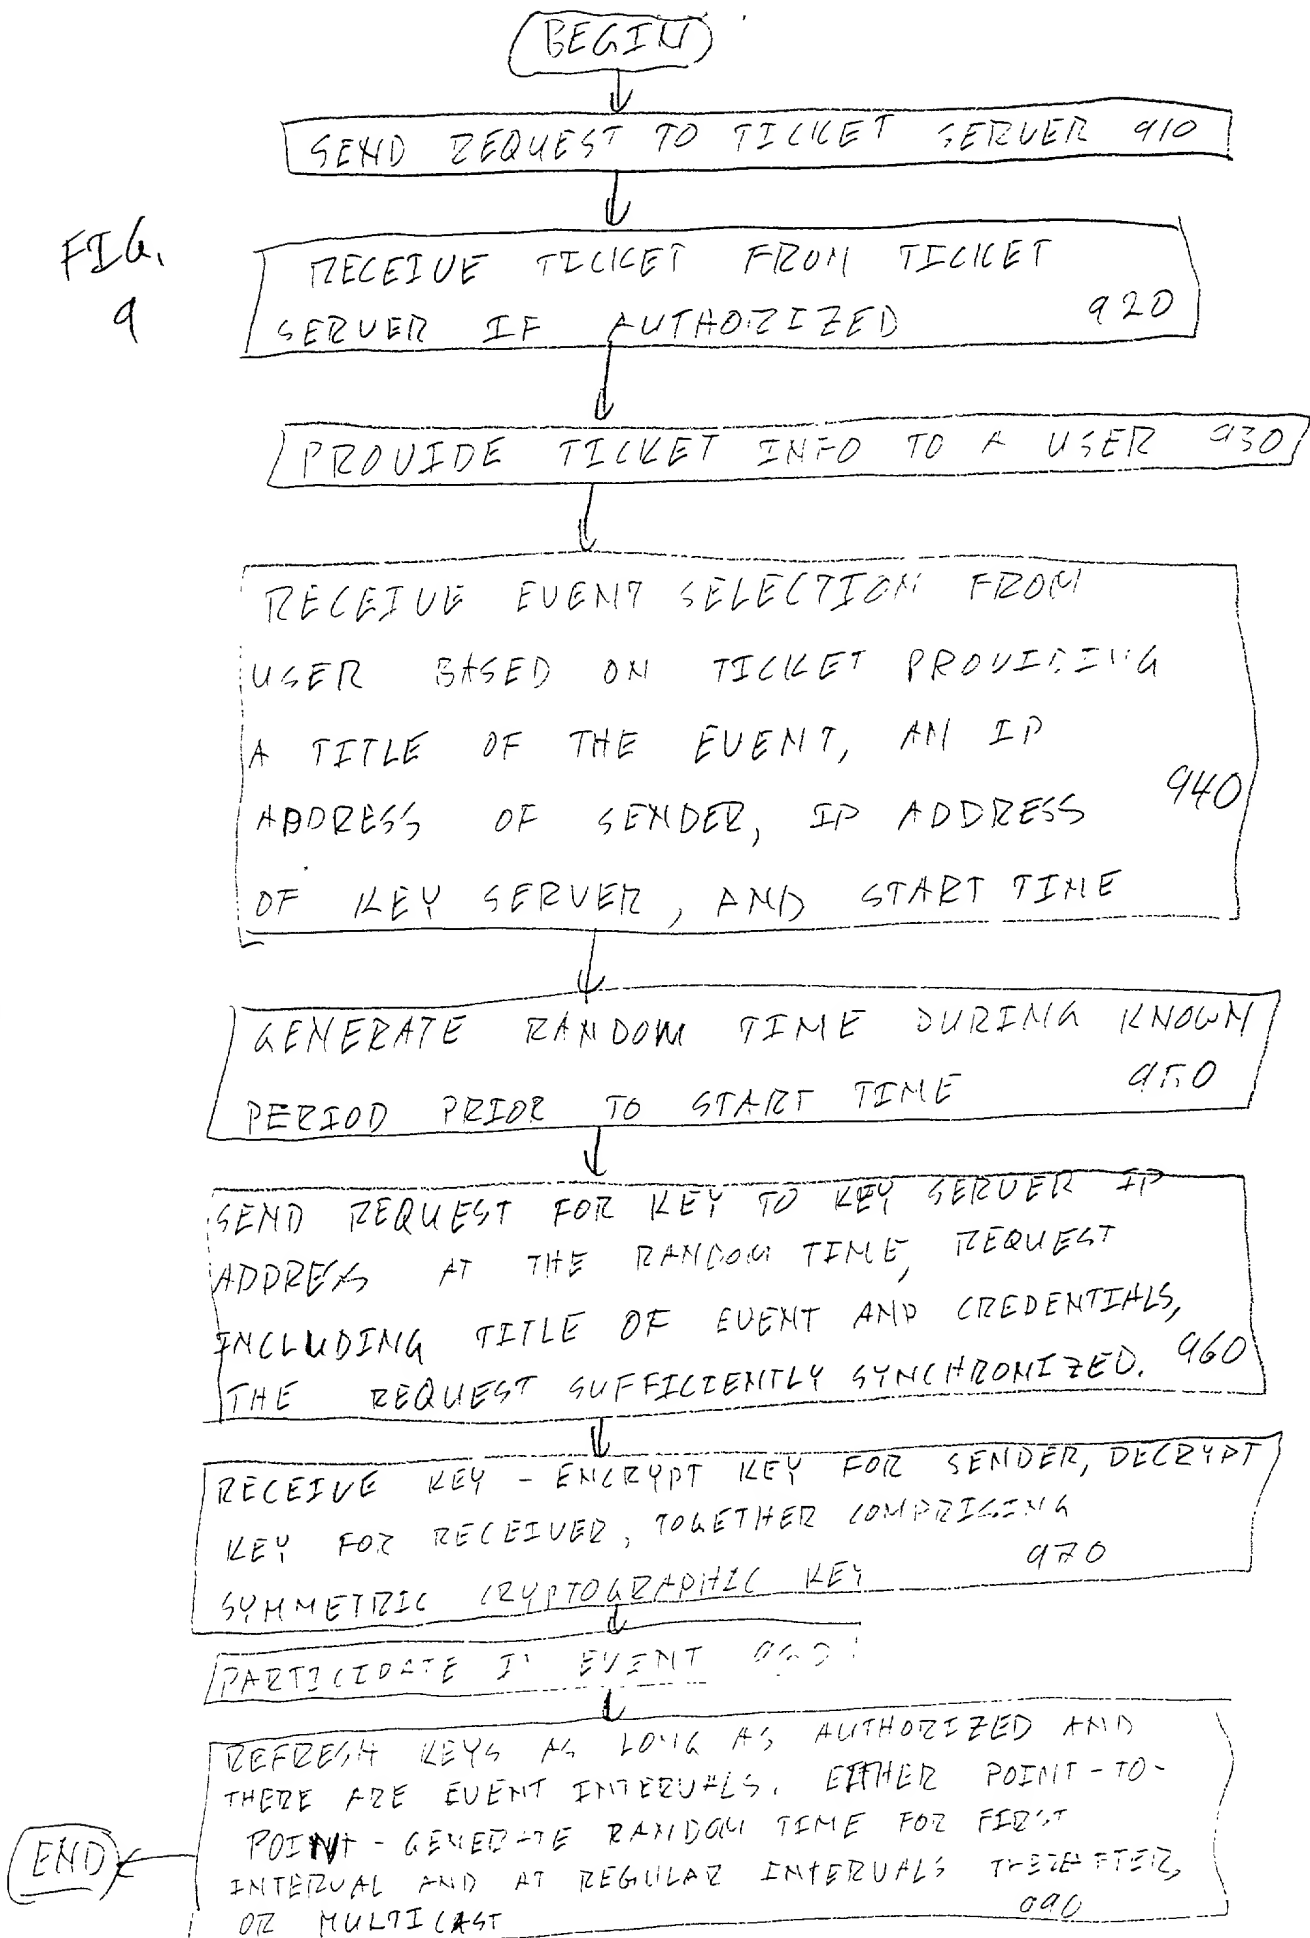 BEGIN
SEND REQUEST TO TICKET SERVER 910
FIG.
9
RECEIVE TICKET FROM TICKET
SERVER IF AUTHORIZED 920
PROVIDE TICKET INFO TO A USER 930
RECEIVE EVENT SELECTION FROM
USER BASED ON TICKET PROVIDING
A TITLE OF THE EVENT, AN IP
ADDRESS OF SENDER, IP ADDRESS
940
OF KEY SERVER, AND START TIME
GENERATE RANDOM TIME DURING KNOWN
PERIOD PRIOR TO START TIME 950
SEND REQUEST FOR KEY TO KEY SERVER IP
ADDRESS AT THE RANDOM TIME, REQUEST
INCLUDING TITLE OF EVENT AND CREDENTIALS,
THE REQUEST SUFFICIENTLY SYNCHRONIZED. 960
RECEIVE KEY - ENCRYPT KEY FOR SENDER, DECRYPT
KEY FOR RECEIVER, TOGETHER COMPRISING
SYMMETRIC CRYPTOGRAPHIC KEY 970
PARTICIPATE IN EVENT
REFRESH KEYS AS LONG AS AUTHORIZED AND
THERE ARE EVENT INTERVALS. EITHER POINT-TO-
POINT - GENERATE RANDOM TIME FOR FIRST
INTERVAL AND AT REGULAR INTERVALS THEREAFTER,
OR MULTICAST 990
END